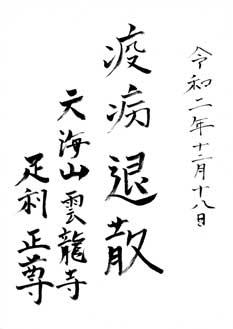 令和二年十二月十八日
疫病退散
天海山雲龍寺
足利正尊